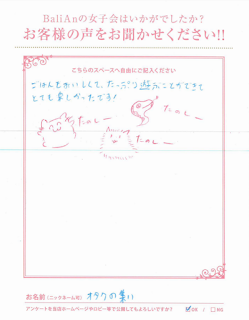 BaliAnの女子会はいかがでしたか？
お客様の声をお聞かせください!!
こちらのスペースへ自由にご記入ください
ごはんもおいしくて、たっぷり遊ぶことができて
とても楽しかったです！
たのしー
たのしー
たのしー
お名前(ニックネーム可) オタクの集い
アンケートを当店ホームページやロビー等で公開してもよろしいですか？ ☑OK / □NG